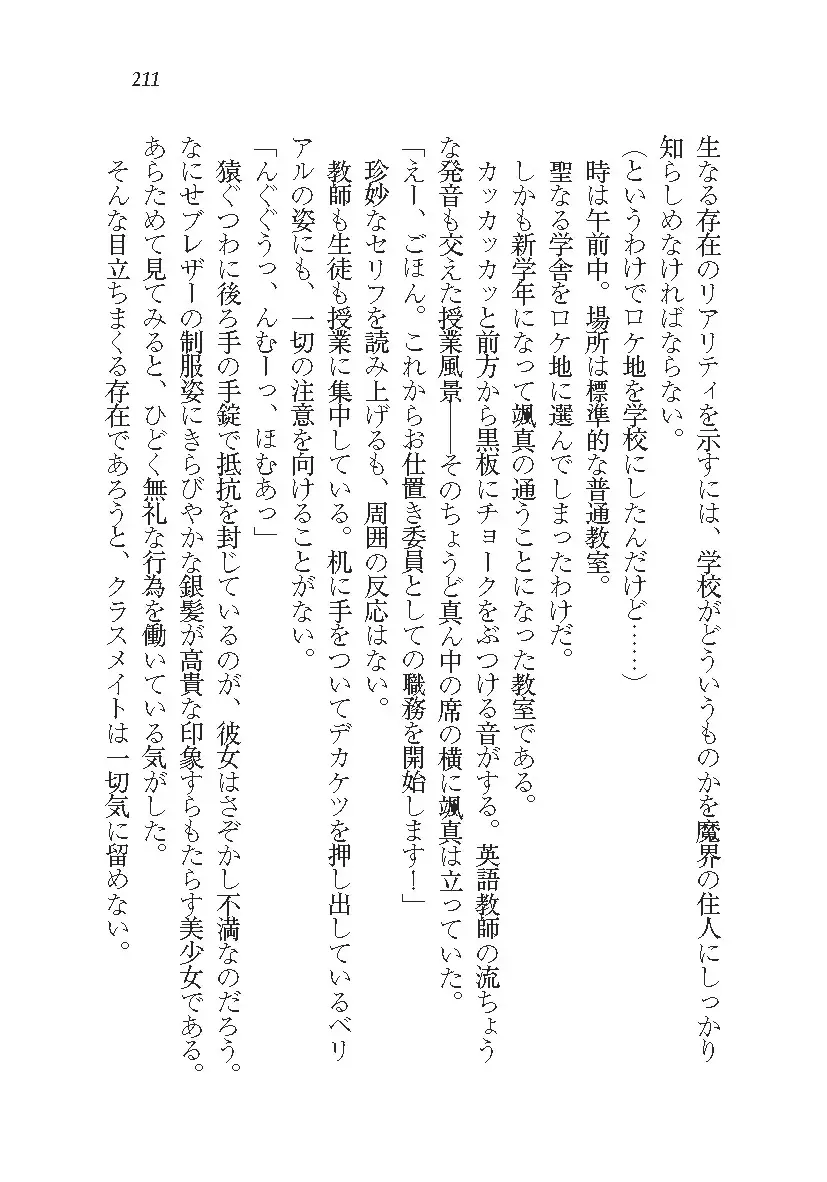 211
生なる存在のリアリティを示すには、学校がどういうものかを魔界の住人にしっかり
知らしめなければならない。
(というわけでロケ地を学校にしたんだけど……)
時は午前中。場所は標準的な普通教室。
聖なる学舎をロケ地に選んでしまったわけだ。
しかも新学年になって颯真の通うことになった教室である。
カッカッカッと前方から黒板にチョークをぶつける音がする。英語教師の流ちょう
な発音も交えた授業風景――そのちょうど真ん中の席の横に颯真は立っていた。
「えー、ごほん。これからお仕置き委員としての職務を開始します！」
珍妙なセリフを読み上げるも、周囲の反応はない。
教師も生徒も授業に集中している。机に手をついてデカケツを押し出しているベリ
アルの姿にも、一切の注意を向けることがない。
「んぐぐうっ、んむーっ、ほむあっ」
猿ぐつわに後ろ手の手錠で抵抗を封じているのが、彼女はさぞかし不満なのだろう。
なにせブレザーの制服姿にきらびやかな銀髪が高貴な印象すらもたらす美少女である。
あらためて見てみると、ひどく無礼な行為を働いている気がした。
そんな目立ちまくる存在であろうと、クラスメイトは一切気に留めない。